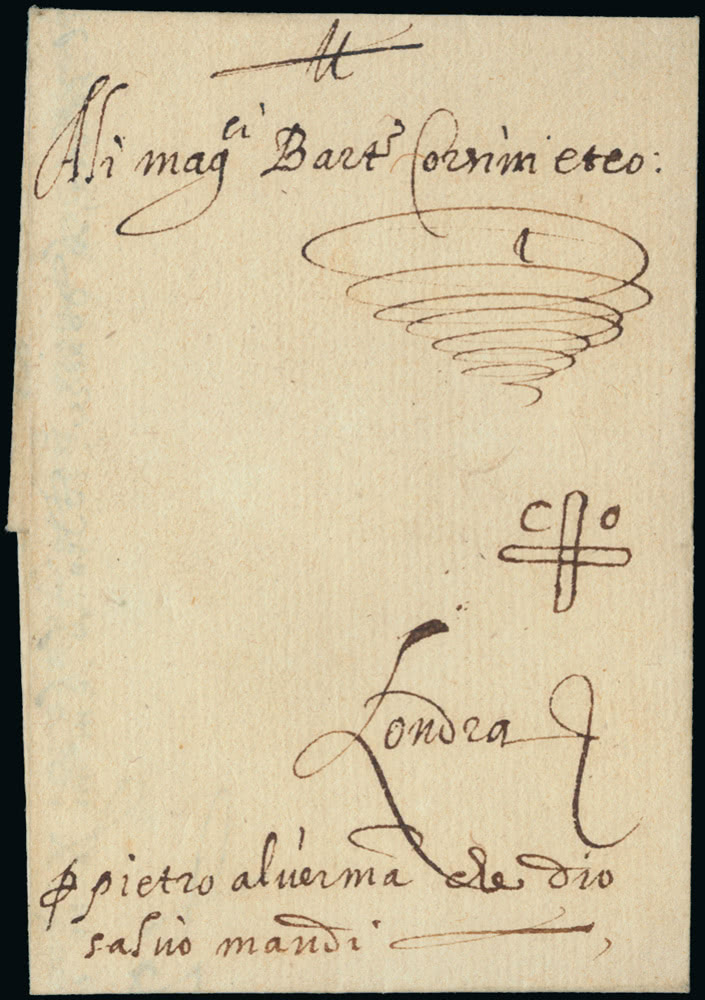 Alj magci Barto Corsini eteo:
C O
Londra
p pietro aluerma che dio
saluo mandi